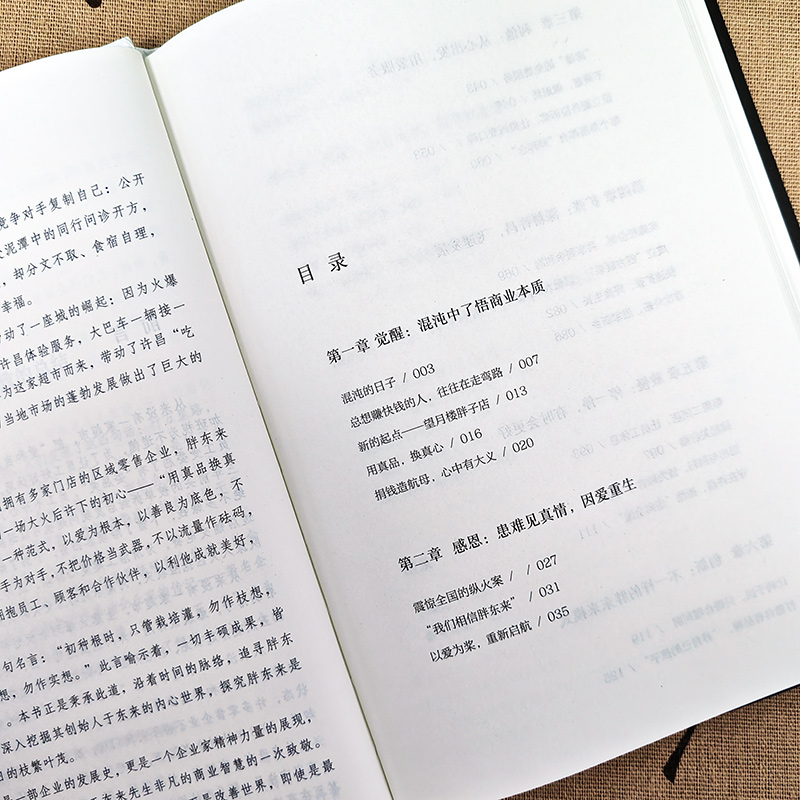 竞争对手复制自己：公开
泥潭中的同行问诊开方，
，却分文不取、食宿自理，
幸福。
动了一座城的崛起：因为火爆
许昌体验服务，大巴车一辆接一
为这家超市而来，带动了许昌“吃
当地市场的蓬勃发展做出了巨大的
拥有多家门店的区域零售企业，胖东来
一场大火后许下的初心——“用真品换真
一种范式，以爱为根本，以善良为底色，不
手为对手，不把价格当武器，不以流量作砝码，
拥抱员工、顾客和合作伙伴，以利他成就美好，
句名言：“初种根时，只管栽培灌，勿作枝想，
想，勿作实想。”此言喻示着，一切丰硕成果，皆
。本书正是秉承此道，沿着时间的脉络，追寻胖东
深入挖掘其创始人于东来的内心世界，探究胖东来是
的枝繁叶茂。
一部企业的发展史，更是一个企业家精神力量的展现，
东来先生非凡的商业智慧的一次致敬。
是改善世界，即使是最
目 录
第一章 觉醒：混沌中了悟商业本质
混沌的日子 / 003
总想赚快钱的人，往往在走弯路 / 007
新的起点——望月楼胖子店 / 013
用真品，换真心 / 016
捐钱造航母，心中有大义 / 020
第二章 感恩：患难见真情，因爱重生
震惊全国的纵火案 / 027
“我们相信胖东来” / 031
以爱为桨，重新启航 / 035